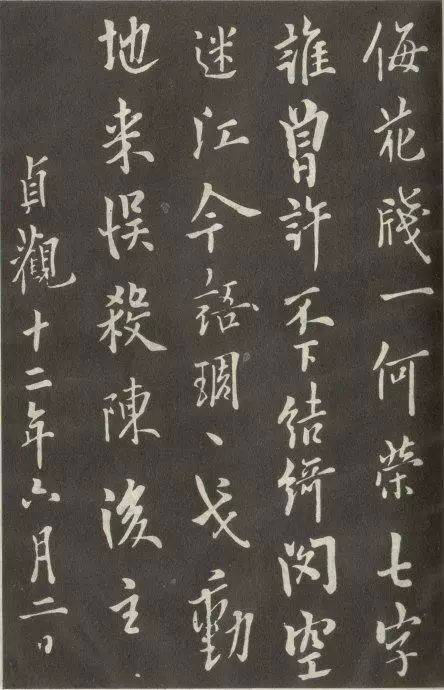 侮花牋一何榮七字
誰曾許不下結綺閣空
迷江令語琱丶戈動
地来悮殺陳後主
貞觀十二年六月二日